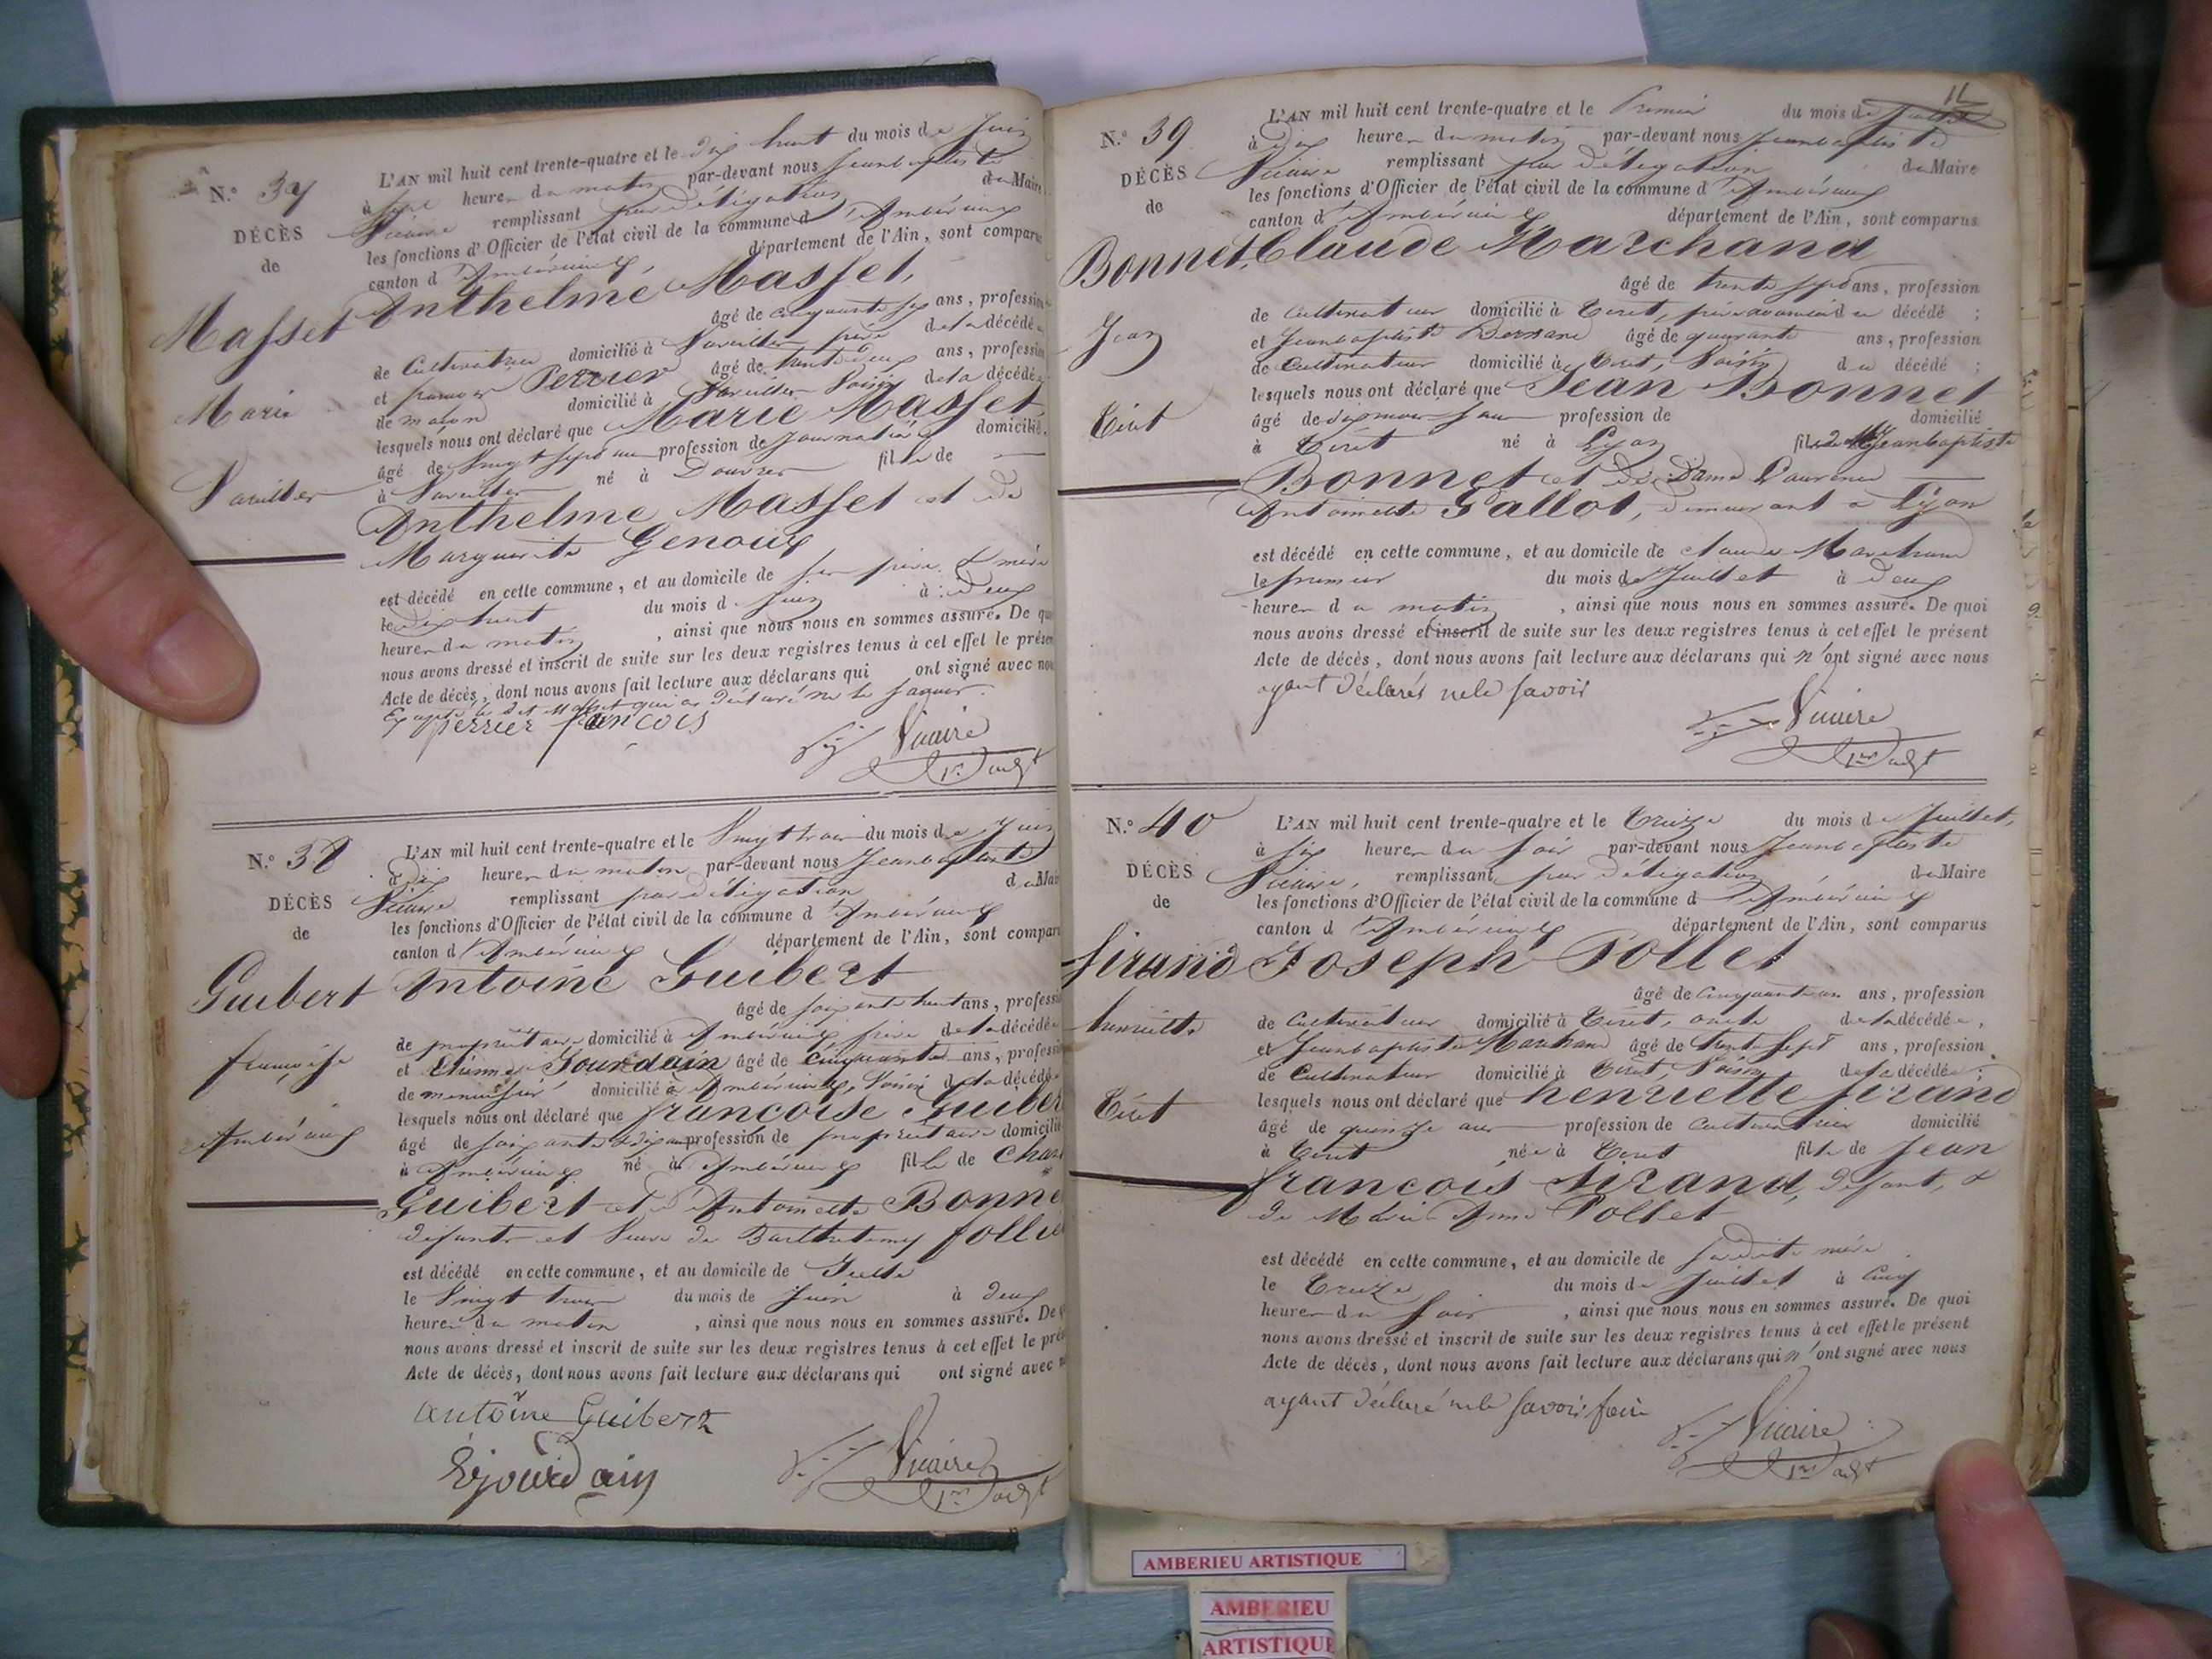 N.º 37
DÉCÈS
de
Masset
Marie
Vareilles
L'AN mil huit cent trente-quatre et le dix huit du mois de Juin
à sept heures du matin par-devant nous Jeanbaptiste
Vicaire remplissant par délégation du Maire
les fonctions d'Officier de l'état civil de la commune d'Ambérieux
canton d'Ambérieux département de l'Ain, sont comparus
Anthelme Masset,
âgé de cinquante six ans, profession
de Cultivateur domicilié à Vareilles père de la décédée
et françois Perrier âgé de trente deux ans, profession
de maçon domicilié à Vareilles Voisin de la décédée
lesquels nous ont déclaré que Marie Masset
âgé de Vingt sept ans profession de Journalière domicilié
à Vareilles né à Douvres fille de
Anthelme Masset et de
Marguerite Genoux
est décédé en cette commune, et au domicile de ses père & mère
le dix huit du mois de Juin à deux
heures du matin, ainsi que nous nous en sommes assuré. De quoi
nous avons dressé et inscrit de suite sur les deux registres tenus à cet effet le présent
Acte de décès, dont nous avons fait lecture aux déclarans qui ont signé avec nous
Excepté le dit Masset qui a déclaré ne le savoir.
perrier francois
Vicaire
1er adjt
N.º 38
DÉCÈS
de
Guibert
françoise
Ambérieux
L'AN mil huit cent trente-quatre et le Vingt trois du mois de Juin
à dix heures du matin par-devant nous Jeanbaptiste
Vicaire remplissant par délégation du Maire
les fonctions d'Officier de l'état civil de la commune d'Ambérieux
canton d'Ambérieux département de l'Ain, sont comparus
Antoine Guibert
âgé de soixante huit ans, profession
de propriétaire domicilié à Ambérieux frère de la décédée
et Etienne Jourdain âgé de cinquante ans, profession
de menuisier domicilié à Ambérieux, Voisin de la décédée
lesquels nous ont déclaré que françoise Guibert
âgé de soixante dix ans profession de propriétaire domicilié
à Ambérieux né à Ambérieux fille de Char
Guibert et d'Antoinette Bonne
défunts et Veuve de Barthelemy follie
est décédé en cette commune, et au domicile de
le Vingt trois du mois de Juin à deux
heures du matin, ainsi que nous nous en sommes assuré. De
nous avons dressé et inscrit de suite sur les deux registres tenus à cet effet le pré
Acte de décès, dont nous avons fait lecture aux déclarans qui ont signé avec
antoine Guibert
Ejourdain
Vicaire
1er adjt
N.º 39
DÉCÈS
de
Bonnet,
Jean
Tiret
L'AN mil huit cent trente-quatre et le Premier du mois de Juillet
à dix heures du matin par-devant nous Jeanbaptiste
Vicaire remplissant par délégation du Maire
les fonctions d'Officier de l'état civil de la commune d'Ambérieux
canton d'Ambérieux département de l'Ain, sont comparus
Claude Marchand
âgé de trente sept ans, profession
de Cultivateur domicilié à Tiret, père nourricier du décédé ;
et Jeanbaptiste Bersand âgé de quarante ans, profession
de Cultivateur domicilié à Tiret, Voisin du décédé ;
lesquels nous ont déclaré que Jean Bonnet
âgé de dix neuf jours profession de domicilié
à Tiret né à Lyon fils de Mr Jeanbaptiste
Bonnet et de Dame Laurence
Antoinette Gallot, demeurant à Lyon
est décédé en cette commune, et au domicile de claude Marchand
le premier du mois de Juillet à deux
heures du matin, ainsi que nous nous en sommes assuré. De quoi
nous avons dressé et inscrit de suite sur les deux registres tenus à cet effet le présent
Acte de décès, dont nous avons fait lecture aux déclarans qui n'ont signé avec nous
ayant déclarés ne le savoir
Vicaire
1er adjt
N.º 40
DÉCÈS
de
Sirand
henriette
Tiret
L'AN mil huit cent trente-quatre et le Treize du mois de Juillet,
à six heures du soir par-devant nous Jeanbaptiste
Vicaire, remplissant par délégation du Maire
les fonctions d'Officier de l'état civil de la commune d'Ambérieux
canton d'Ambérieux département de l'Ain, sont comparus
Joseph Pollet
âgé de cinquante un ans, profession
de Cultivateur domicilié à Tiret, oncle de la décédée,
et Jeanbaptiste Marchand âgé de trente sept ans, profession
de Cultivateur domicilié à Tiret, Voisin de la décédée ;
lesquels nous ont déclaré que henriette Sirand
âgé de quinze ans profession de cultivatrice domicilié
à Tiret née à Tiret fille de Jean
françois Sirand, défunt, &
de Marie Anne Pollet
est décédé en cette commune, et au domicile de sa dite mère
le Treize du mois de Juillet à cinq
heures du soir, ainsi que nous nous en sommes assuré. De quoi
nous avons dressé et inscrit de suite sur les deux registres tenus à cet effet le présent
Acte de décès, dont nous avons fait lecture aux déclarans qui n'ont signé avec nous
ayant déclaré ne le savoir faire
Vicaire
1er adjt
AMBERIEU ARTISTIQUE
AMBERIEU
ARTISTIQUE